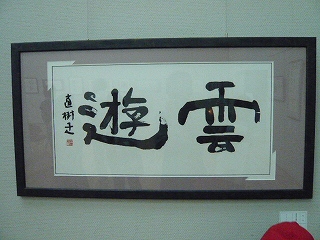 雲遊
直樹之